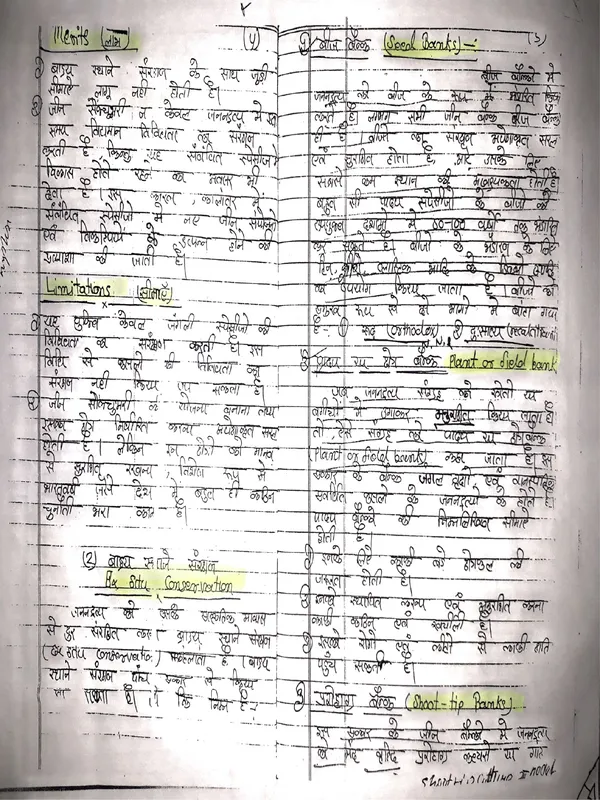 Merits (लाभ) (4)
① बाह्य स्थाने संरक्षण के साथ जुड़ी
सीमाएं लागू नहीं होती है।
② जीन सैंक्चुअरी न केवल जननद्रव्य में इस
समय विद्यमान विविधता का संरक्षण
करती है, किन्तु यह संबंधित स्पेसीजों के
विकास होते रहने का अवसर भी
देता है। इस कारण, कालांतर में
संबंधित स्पेसीजों में नए जीन
एवं के उत्पन्न होने की
प्रत्याशा की जाती है।
Limitations (सीमाएँ)
① यह युक्ति केवल जंगली स्पेसीजों की
विविधता का संरक्षण करती है। इस
विधि से फसलों की विविधता का
संरक्षण नहीं किया जा सकता है।
② जीन सैंक्चुअरी की योजना बनाना तथा
उसका क्षेत्र निर्धारित करना अपेक्षाकृत सरल
होती है। लेकिन इन क्षेत्रों को मानव
से सुरक्षित रखना, विशेष रूप से
भारतवर्ष जैसे देश में बहुत ही कठिन
चुनौती भरा काम है।
(2) बाह्य स्थाने संरक्षण
Ex Situ Conservation
जननद्रव्य को उसके प्राकृतिक आवास
से दूर संरक्षित करना बाह्य स्थाने संरक्षण
(Ex situ conservation) कहलाता है। बाह्य
स्थाने संरक्षण पांच प्रकार से किया
जा सकता है। जो कि निम्न है:-
(5)
① बीज बैंक (Seed Banks) -:
बीज बैंकों में
जननद्रव्य को बीज के रूप में भंडारित किया
करते हैं। लगभग सभी जीन बैंक बीज बैंक
ही हैं। बीजों का संरक्षण अपेक्षाकृत सरल
एवं सुरक्षित होता है, और उसके लिए
सबसे कम स्थान की आवश्यकता होती है
बहुत सी पादप स्पेसीजों के बीजों को
उपयुक्त दशाओं में 50-100 वर्षों तक भंडारित
कर सकते हैं। बीजों के भंडारण के लिए
टिन, शीशे, प्लास्टिक आदि के डिब्बों
का उपयोग किया जाता है। बीजों को
मुख्य रूप से दो भागों में बांटा गया
है:- ① रूढ़ (Orthodox) ② दुःसाध्य (recalcitrant)
② पादप या क्षेत्र बैंक Plant or field bank
जब जननद्रव्य संग्रह को खेतों या
बगीचों में उगाकर अनुरक्षित किया जाता है।
तो, ऐसे संग्रह को पादप या क्षेत्र बैंक
(Plant or field banks) कहा जाता है। इस
प्रकार के बैंक जंगल वृक्षों, एवं
संबंधित फसलों के जननद्रव्यों के होते हैं।
पादप बैंकों की निम्नलिखित सीमाएँ
होती हैं
① इनके लिए काफी बड़े क्षेत्रफल की
जरूरत होती है।
② इनको स्थापित करना एवं अनुरक्षित करना
काफी कठिन एवं खर्चीला है।
③ इसको रोगों एवं कीटों से काफी क्षति
पहुंच सकती है।
③ प्ररोहाग्र बैंक (Shoot-tip Banks)
इस प्रकार के जीन बैंकों में जननद्रव्य